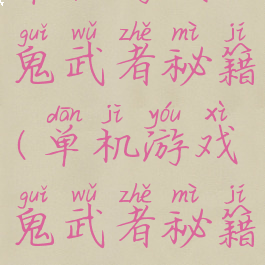 guǐ wǔ zhě mì jí
鬼武者秘籍
dān jī yóu xì
(单机游戏
guǐ wǔ zhě mì jí
鬼武者秘籍